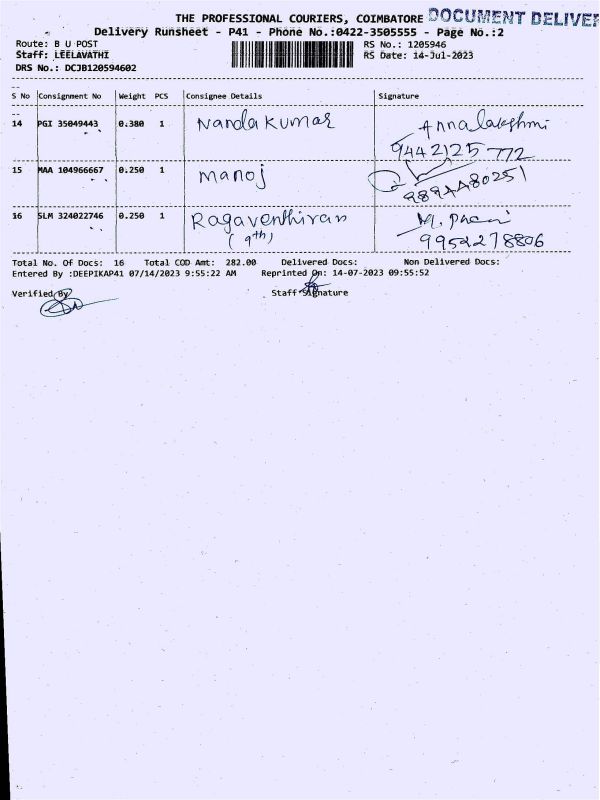 THE PROFESSIONAL COURIERS, COIMBATORE DOCUMENT DELIVER
Delivery Runsheet - P41 - Phone No.:0422-3505555 - Page No.:2
Route: B U POST RS No.: 1205946
Staff: LEELAVATHI RS Date: 14-Jul-2023
DRS No.: DCJB120594602
S No Consignment No Weight PCS Consignee Details Signature
14 PGI 35049443 0.380 1 Nandakumar Annalakshmi
9442125772
15 MAA 104966667 0.250 1 Manoj
9894480251
16 SLM 324022746 0.250 1 Ragaventhiran M.
(9th) 9952278806
Total No. Of Docs: 16 Total COD Amt: 282.00 Delivered Docs: Non Delivered Docs:
Entered By :DEEPIKAP41 07/14/2023 9:55:22 AM Reprinted On: 14-07-2023 09:55:52
Verified By Staff Signature